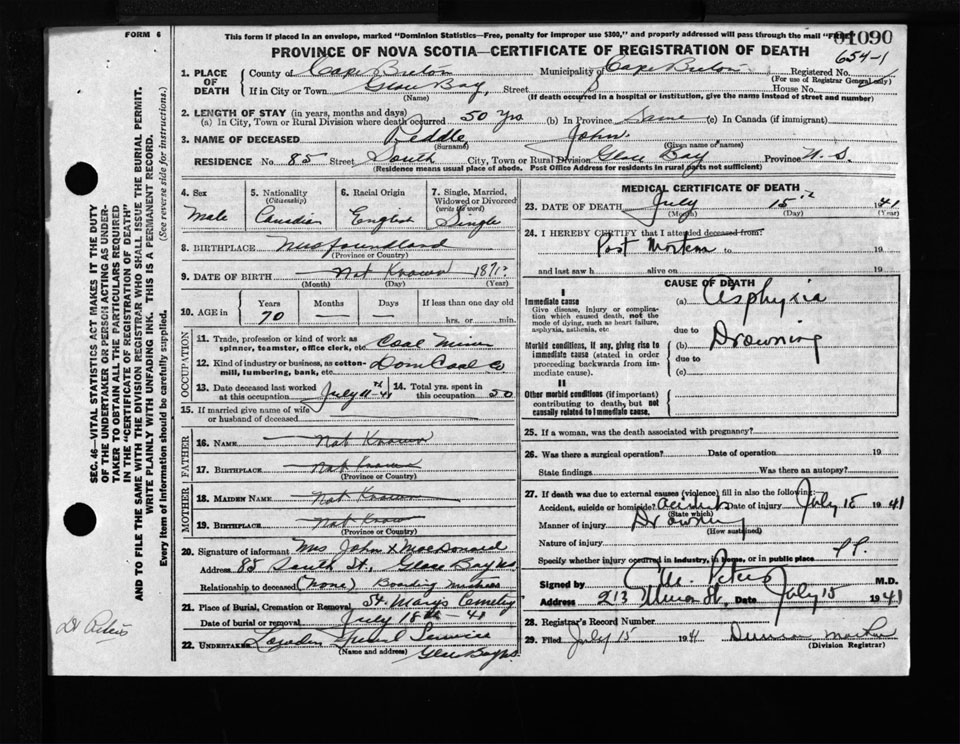 FORM 6
This form if placed in an envelope, marked "Dominion Statistics—Free, penalty for improper use $300," and properly addressed will pass through the mail "Free"
01090
PROVINCE OF NOVA SCOTIA—CERTIFICATE OF REGISTRATION OF DEATH
654-1
1. PLACE OF DEATH
County of Cape Breton Municipality of Cape Breton Registered No.
(For use of Registrar General only)
If in City or Town Glace Bay, Street House No.
(Name) (If death occurred in a hospital or institution, give the name instead of street and number)
2. LENGTH OF STAY (in years, months and days)
(a) In City, Town or Rural Division where death occurred 50 Yrs (b) In Province Same (c) In Canada (if immigrant)
3. NAME OF DECEASED Peddle John
(Surname) (Given name or names)
RESIDENCE No. 85 Street South City, Town or Rural Division Glace Bay Province N.S.
(Residence means usual place of abode. Post Office Address for residents in rural parts not sufficient)
SEC. 46—VITAL STATISTICS ACT MAKES IT THE DUTY
OF THE UNDERTAKER OR PERSON ACTING AS UNDER-
TAKER TO OBTAIN ALL THE PARTICULARS REQUIRED
IN THE "CERTIFICATE OF REGISTRATION OF DEATH"
AND TO FILE THE SAME WITH THE DIVISION REGISTRAR WHO SHALL ISSUE THE BURIAL PERMIT.
WRITE PLAINLY WITH UNFADING INK. THIS IS A PERMANENT RECORD.
Every item of Information should be carefully supplied. (See reverse side for instructions.)
4. Sex
Male
5. Nationality
(Citizenship)
Canadian
6. Racial Origin
English
7. Single, Married,
Widowed or Divorced
(write the word)
Single
8. BIRTHPLACE Newfoundland
(Province or Country)
9. DATE OF BIRTH Not Known 1871?
(Month) (Day) (Year)
10. AGE in
Years
70
Months
—
Days
—
If less than one day old
hrs. or min.
OCCUPATION
11. Trade, profession or kind of work as
spinner, teamster, office clerk, etc. Coal Miner
12. Kind of industry or business, as cotton-
mill, lumbering, bank, etc. Dom Coal Co
13. Date deceased last worked
at this occupation July 11th-41
14. Total yrs. spent in
this occupation 50
15. If married give name of wife
or husband of deceased
FATHER
16. NAME Not Known
17. BIRTHPLACE Not Known
(Province or Country)
MOTHER
18. MAIDEN NAME Not Known
19. BIRTHPLACE Not Known
(Province or Country)
20. Signature of informant Mrs John X MacDonald
Address 85 South St., Glace Bay NS
Relationship to deceased (None) Boarding Mistress
21. Place of Burial, Cremation or Removal St. Marys Cemetry
Date of burial or removal July 18th-41
22. UNDERTAKER Service
(Name and address) Glace Bay NS
MEDICAL CERTIFICATE OF DEATH
23. DATE OF DEATH July 15 1941
(Month) (Day) (Year)
24. I HEREBY CERTIFY that I attended deceased from:
Post Mortem to 19
and last saw h alive on 19
CAUSE OF DEATH
I
Immediate cause
Give disease, injury or complica-
tion which caused death, not the
mode of dying, such as heart failure,
asphyxia, asthenia, etc
(a) Asphyxia
due to
Morbid conditions, if any, giving rise to
immediate cause (stated in order
proceeding backwards from im-
mediate cause).
(b) Drowning
due to
(c)
II
Other morbid conditions (if important)
contributing to death, but not
causally related to immediate cause.
25. If a woman, was the death associated with pregnancy?
26. Was there a surgical operation? Date of operation 19
State findings Was there an autopsy?
27. If death was due to external causes (violence) fill in also the following:
Accident, suicide or homicide? Accident Date of injury July 15 1941
(State which)
Manner of injury Drowning
(How sustained)
Nature of injury
Specify whether injury occurred in industry, in home, or in public place P.P.
Signed by Peters M.D.
Address 213 St. Date July 15 1941
28. Registrar's Record Number
29. Filed July 15 1941 Duncan
(Division Registrar)
Dr Peters